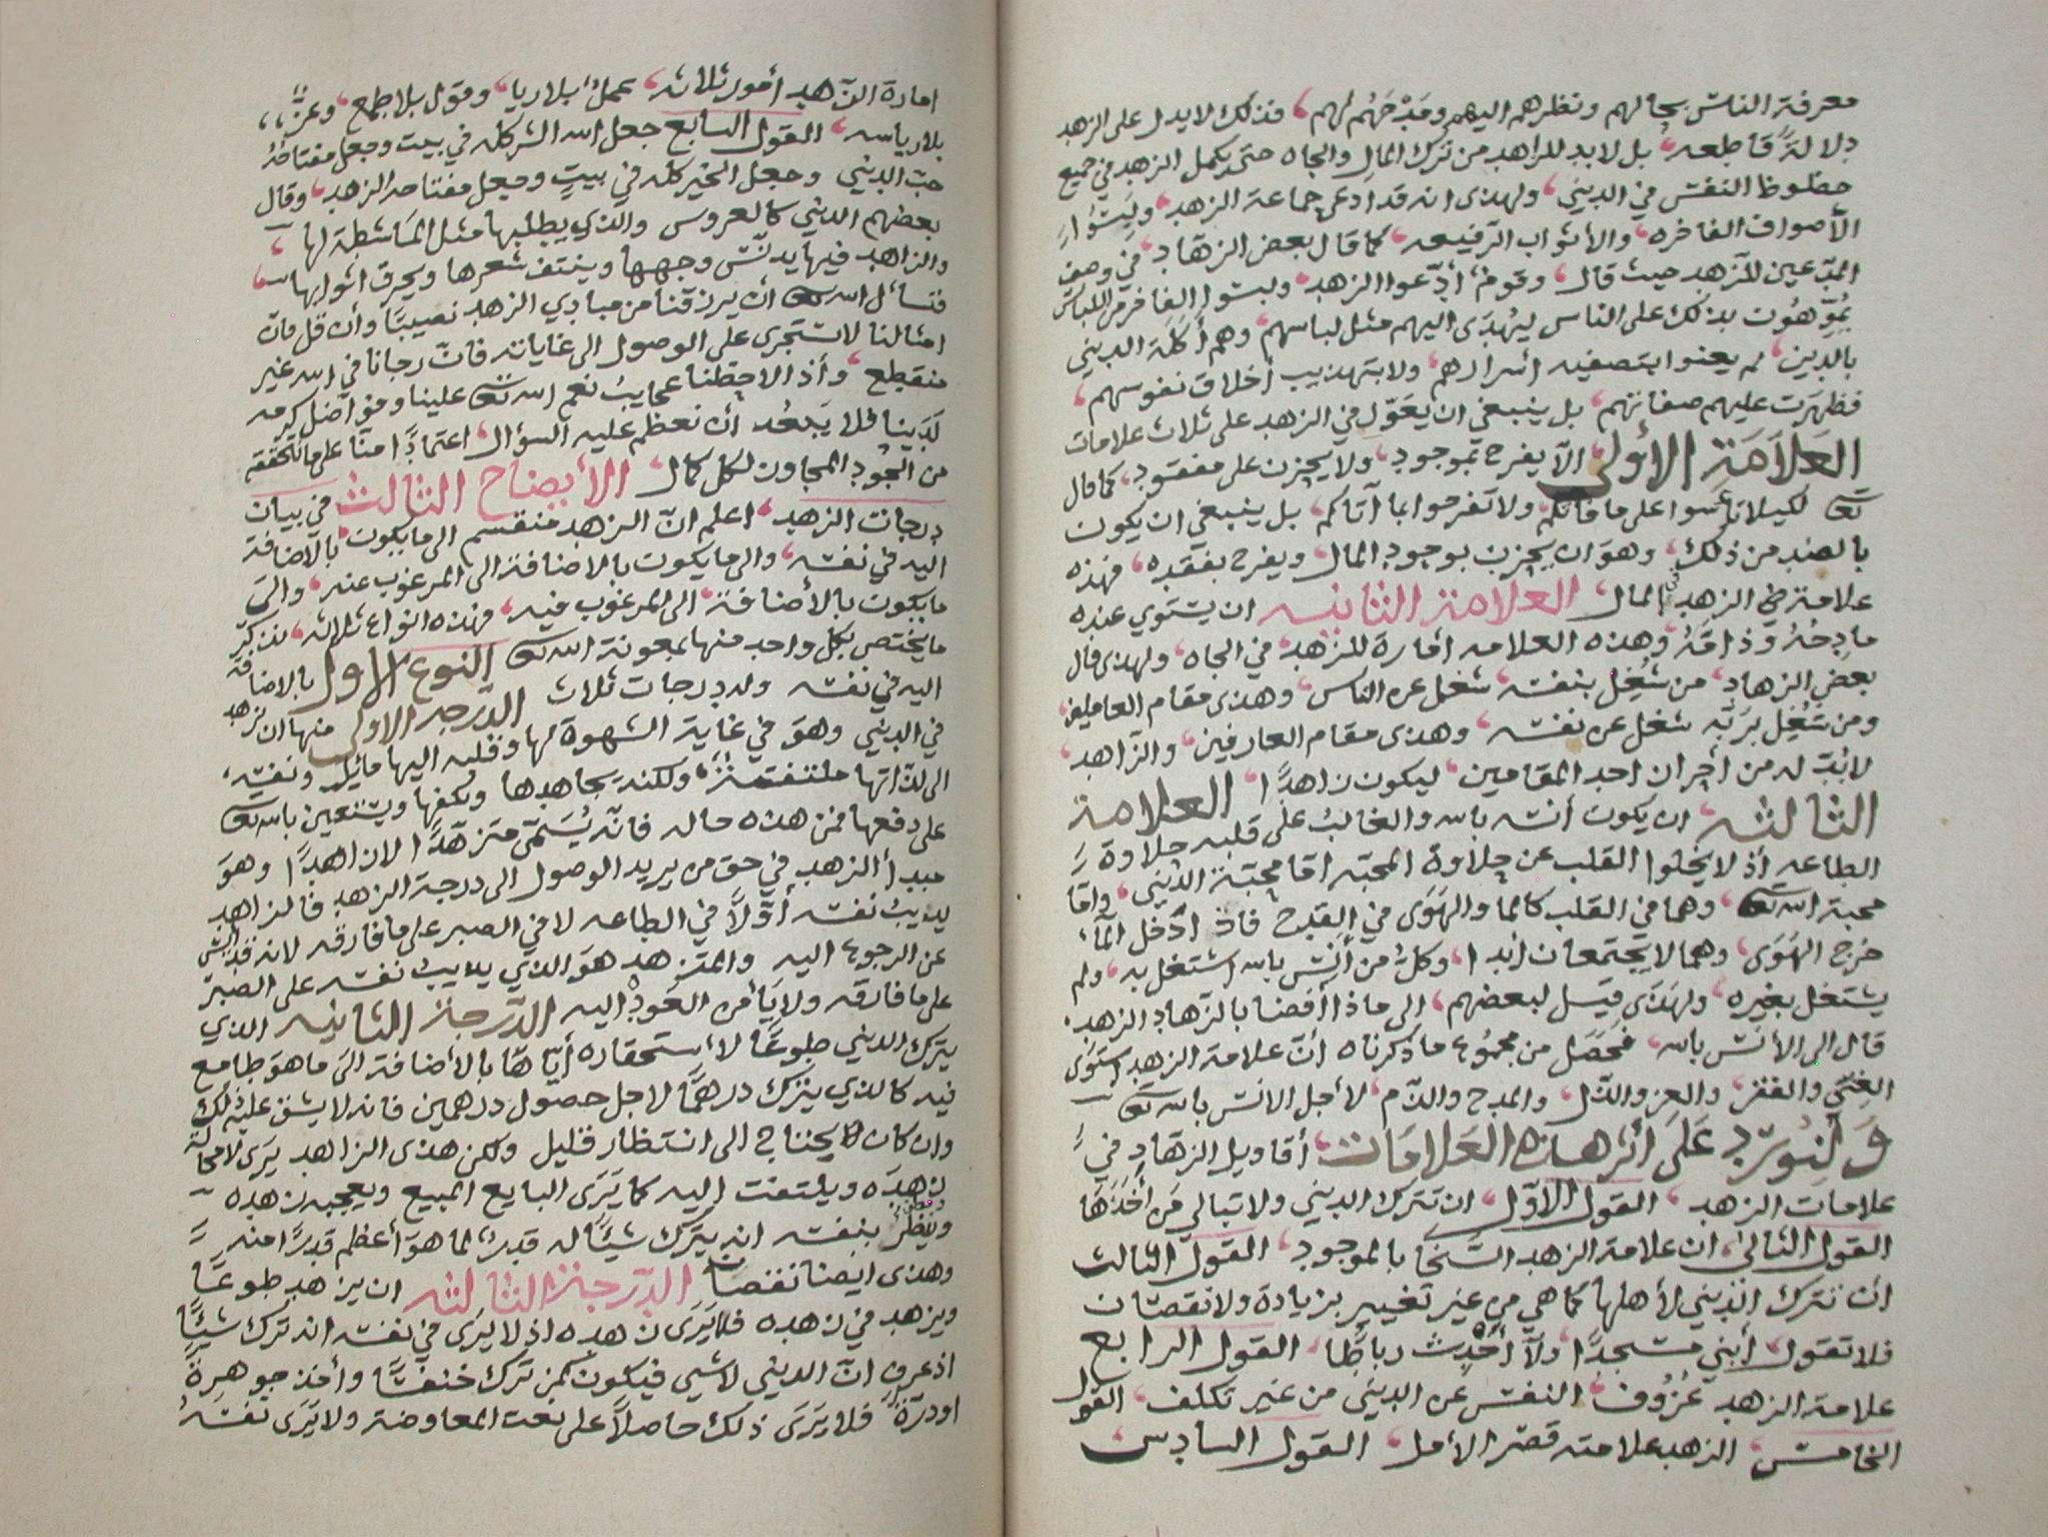 معرفة الناس بحالهم ونظرهم اليهم ومَدْحَهُم لهم، فذلك لا يدل على الزهد
دلالةً قاطعه، بل لابد للزاهد من ترك المال والجاه حتى يكمل الزهد في جميع
حظوظ النفس في الديني، ولهذى انه قد ادعى جماعة الزهد،
الأصواف الفاخره، والأثواب الرفيعه، كما قال بعض الزهاد، في وصف
المدّعين للزهد حيث قال، وقومٌ، أدّعوا الزهد، ولبسوا الفاخر من اللباس
يُمَوِّهُون بذلك على الناس ليُهدَى اليهم مثل لباسهم، وهم أكلة الديني
بالدين، لم يعنوا بتصفيه أسرارهم، ولا بتهذيب أخلاق نفوسهم،
فظهرَت عليهم صفاتهم، بل ينبغي ان يعوّل في الزهد على ثلاث علامات
العَلاَمَةِ الأولى الاّ يفرح بموجود، ولا يحزن على مفقود، كما قال
تعا لكيلا تاسوا على ما فاتكم، ولا تفرحوا بما آتاكم، بل ينبغي ان يكون
بالضد من ذلك، وهو ان يحزن بوجود المال، ويفرح بفقده، فهذه
علامة في الزهد في المال، العلامة الثانيه ان يستوي عنده
مادحُهُ وذامّهُ، وهذه العلامه امارة للزهد، في الجاه، ولهذى قال
بعض الزهاد، من شُغِل بنفسه، شغل عن الناس، وهذى مقام العاملين،
ومن شُغِل بربّه شغل عن نفسه، وهذى مقام العارفين، والزاهد،
لابُدّ له من أحد المقامين، ليكون زاهدًا، العلامة
الثالثه، ان يكون أنسه بالله والغالبُ على قلبه حلاوة
الطاعه اذ لا يخلوا القلب عن حلاوة المحبه اما محبّة الديني، وامّا
محبة الله تعا، وهما في القلب كالما والهوَى في القدح فاذ ادخل الما،
خرج الهوَى، وهما لا يجتمعان ابدا، وكلُ من أنِسَ بالله اشتغل به، ولم
يشتغل بغيره، ولهذَى قيل لبعضهم، الى ماذا أفضا بالزهاد الزهد،
قال الى الأنس بالله، فحصَل من مجموع ما ذكرناه انّ علامة الزهد استوَى
الغنى والفقر، والعز والذّل، والمدح والذّم، لأجل الانس بالله تعا
وَلنُورِد عَلىَ أثر هذه العَلامَات، أقاويل الزهّاد في
علامات الزهد، القول الاوّل، ان تترك الديني ولا تبالي مَن أخذهَا
القول الثاني، ان علامة الزهد السّخا بالموجود، القول الثالث
ان تترك الديني لأهلها كما هي من غير تغيير بزيادة ولا نقصان
فلا تقول أبني مسجدًا، ولا أحدث رباطًا، القول الرابع
علامة الزهد عزوف النفس عن الديني من غير تكلف، القول
الخامس، الزهد علامته قصر الأمل، القول السادس
امارة الزهد أمور ثلاثه، عملٌ بلا ريا، وقول بلا طمع، وعزٌّ،،
بلا رياسه، القول السابع جعل الله الشر كله في بيت وجعل مفتاحهُ
حب الديني وجعل الخير كله في بيتٍ وجعل مفتاحه الزهد، وقال
بعضهم الديني كالعروس والذي يطلبها مثل الماشطة لها،
والزاهد فيها يدنّس وجهها وينتف شعرها ويحرق اثوابها،
فنسأل الله تعا أن يرزقنا من مبادي الزهد نصيبًا وأن قل فان
امثالنا لا تستجرى على الوصول الى غاياته فانّ رجانا في الله غير
منقطع، وأذ الاحظنا عجايبُ نعم الله تعا علينا وفواضل كرمه
لَدَينا فلا يَبعُد أن نعظم عليه السؤال، اعتمادًا منّا على ما تحققه
من الجود المجاوز لكل كمال الأيضاح الثالث في بيان
درجات الزهد، اعلم انّ الزهد منقسم الى ما يكون، بالاضافة
اليه في نفسه، والى ما يكون بالاضافة الى المرغوب عنه، والى
ما يكون بالأضافة، الى المرغوب فيه، فهذه انواع ثلاثه، نذكر
ما يختص بكل واحد منها بمعونة الله تعا النوع الاول بالاضافة
اليه في نفسه وله درجات ثلاث الدرجه الاولى منها ان يزهد
في الديني وهوَ في غاية الشهوة لها وقلبه اليها مائل ونفسه،
الى لذاتها ملتفتة، ولكنه يجاهدها ويكفها ويستعين بالله تعا
على دفعها فمن هذه حاله فانّه يُسَمّى متزهّدًا لا زاهدًا وهوَ
مبدأ الزهد في حق من يريد الوصول الى درجة الزهد فالزاهد
يذيبُ نفسه أوّلاً في الطاعه لا في الصبر على ما فارقه لانه قد أيس
عن الرجوع اليه والمتزهد هوَ الذي يذيبُ نفسه على الصبر
على ما فارقه ولا يَأمن العَود اليه الدّرجة الثانيه الذي
يترك الديني طوعًا لأستحقاره أيّاهَا بالأضافة الىَ ما هوَ طامع
فيه كالذي يترك درهمًا لاجل حصول درهمين فانه لا يشق عليه ذلك
وان كان يحتاج الى انتظار قليل ولكن هذى الزاهد يرَى لا محالة
زهدَه ويلتفت إليه كما يَرَى البايع المبيع ويعجبه زهده
وينظر بنفسه انه يترك شيئًا له قدرٌ لما هوَ أعظم قدرًا منه
وهذى ايضا نقصان الدّرجة الثالثه ان يزهد طوعًا
ويزهد في زهده فلا يَرَى زهده اذ لا يرَى في نفسه انه ترك شيئًا
اذ عرف انّ الديني لا شيي فيكون كمن ترك خنفسًا وأخذ جوهرةً
او درّةً فلا يَرَى ذلك حاصلاً على نعت المعاوضة ولا يَرَى نفسُهُ